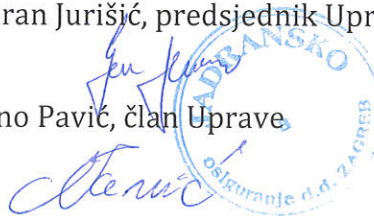 ran Jurišić, predsjednik Upr
no Pavić, član Uprave
JADRANSKO
osiguranje d.d. ZAGREB